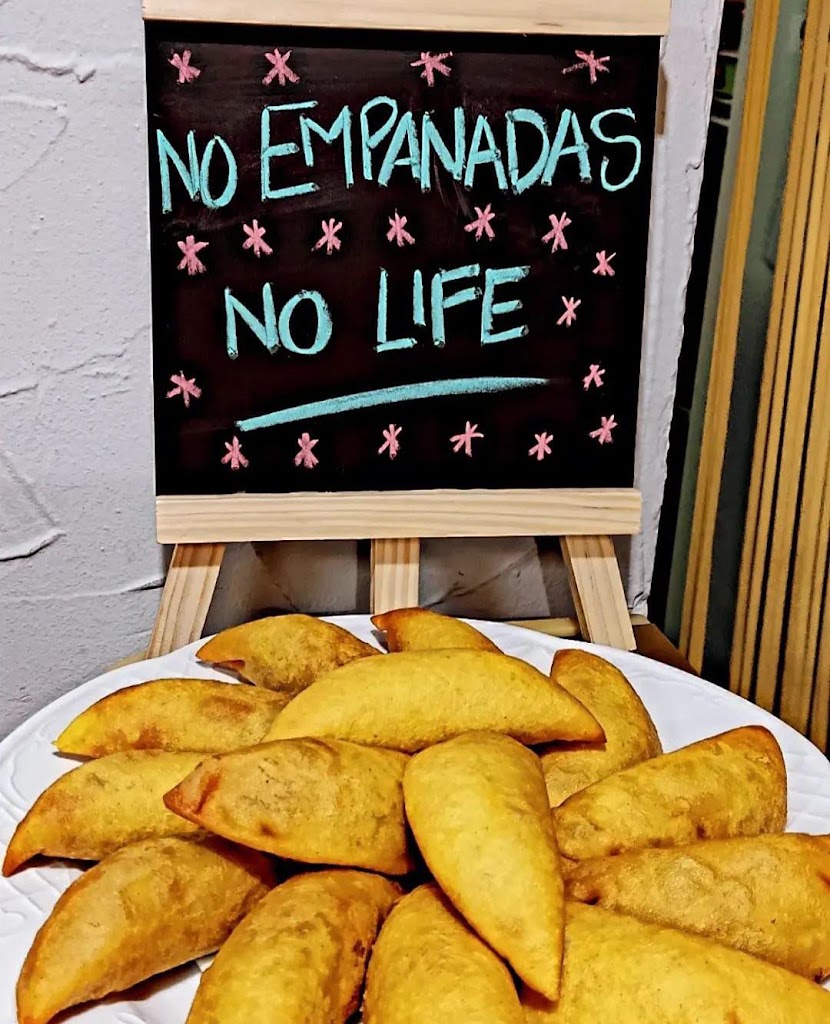 NO EMPANADAS
NO LIFE